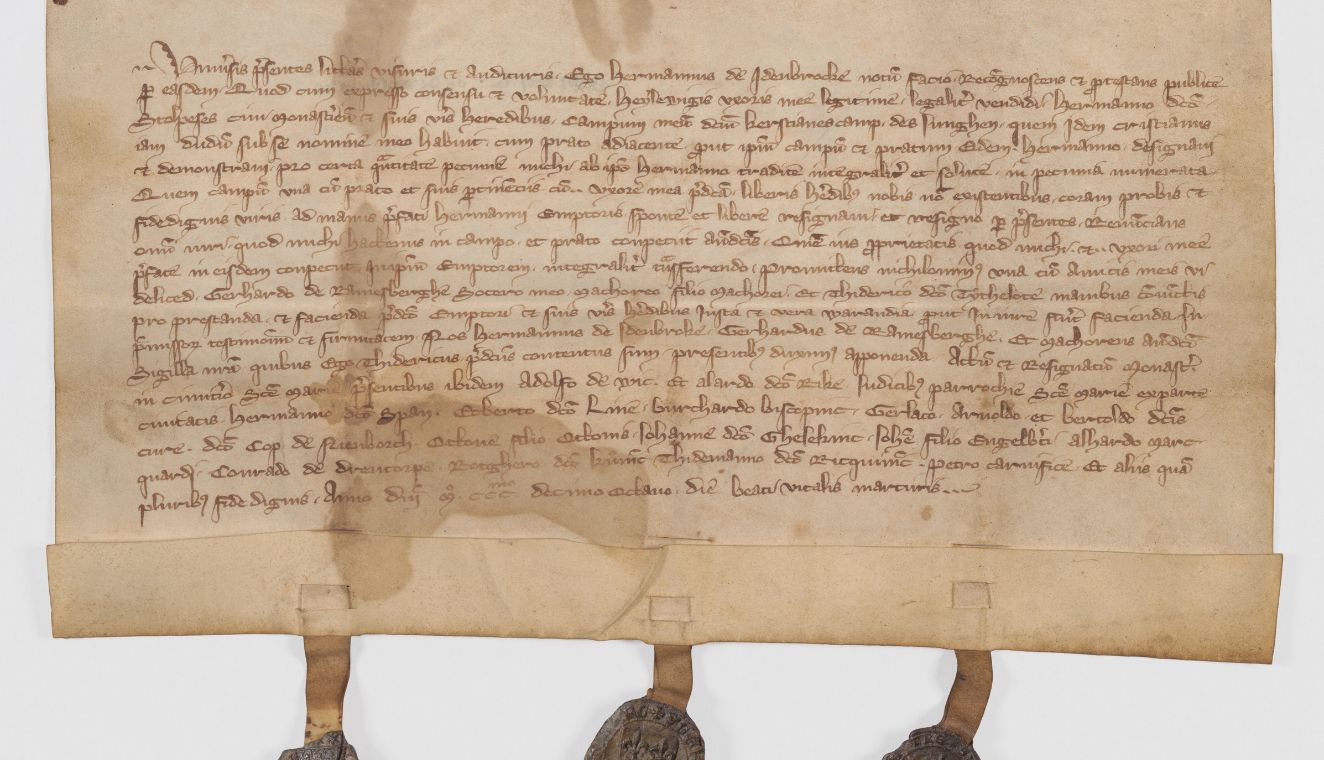 Uniuersis p̄sentes litt̄as visuris ⁊ audituris. Ego hermannus de Idenbrocke notū facio. Recōgnoscens ⁊ ꝓtestans publice
ꝑ easdem. Quod cum expresso consensu ⁊ voluntate. heylewigis vxoris mee legitime. legalit̄ vendidi. hermanno dc̄o
Stolpeses ciui Monast̄ien̄ ⁊ suis v̄is heredibus. Campum meū dc̄m kerstianescamp. des Iunghen. quem Idem cristianus
iam dudū sub se nomine meo habuit. cum prato adiacente. ꝓut ip̄m campū ⁊ pratum Eidem hermanno. designaui
⁊ demonstraui. pro certa qᵃntitate pecunie michi ab ip̄o hermanno tradite integralit̄ et solute. in pecunia numerata.
Quem campū vna cū prato et suis ꝑtinēciis cū.. vxore mea p̄dc̄a. liberis h̄edibꝰ nobis nō existentibus. coram probis ⁊
fidedignis viris. ad manus p̄fati hermanni Emptoris. sponte et libere resignaui. et resigno ꝑ p̄sentes. Renūcians
omī iuri. quod michi hactenus in campo. et prato conpeciit an̄dc̄is. Om̄e ius ꝓprietatis. quod michi. ⁊.. vxori mee
p̄fate in eisdem conpeciit. in ip̄m Emptorem. integralit̄ tᵃnsferendo. Promittens nichilominꝰ vna cū Amicis meis vi
delicet. Gerhardo de Ramesberghe Socero meo. Machoreo filio Machorei. et Thiderico dc̄o Tythelote manibus cōiūctis
pro prestanda. ⁊ facienda p̄dc̄o Emptori ⁊ suis v̄is h̄edibus Iusta ⁊ vera warandia. ꝓut In iure fu̅it facienda. In
p̄missor̄ testimoniū ⁊ firmitatem. Nos hermannus de Idenbroke. Gerhardus de Ramesberghe. Et Machoreus an̄dc̄i
Sigilla nr̄a quibus Ego Thidericus p̄dc̄us contentus sum. presentibꝰ duximꝰ apponenda. Actū ⁊ Resignatū Monast̄.
in cimit̄io Sc̄e Marie p̄sentibus ibidem Adolfo de vric. Et alardo dc̄o Rike. Iudicibꝰ parrochie Sc̄e Marie exparte
ciuitatis. hermanno dc̄o Span. Etberto dc̄o Line. burchardo biscopinc. Gerlaco. Arnoldo. et bertoldo dc̄is
cure. dc̄o Cop de Nienborch. Ottone filio Ottonis. Iohanne dc̄o Ghesekinc. Ioh̄e filio Engelb̄ti. alhardo Marc
quardi. Conrado de drentorpe. Rotghero dc̄o Thidemanno dc̄o petro carnifice. Et aliis quā
pluribꝰ fide dignis. Anno dn̄i m̊. ccc̊ decimo Octauo. die beati vitalis martiris...